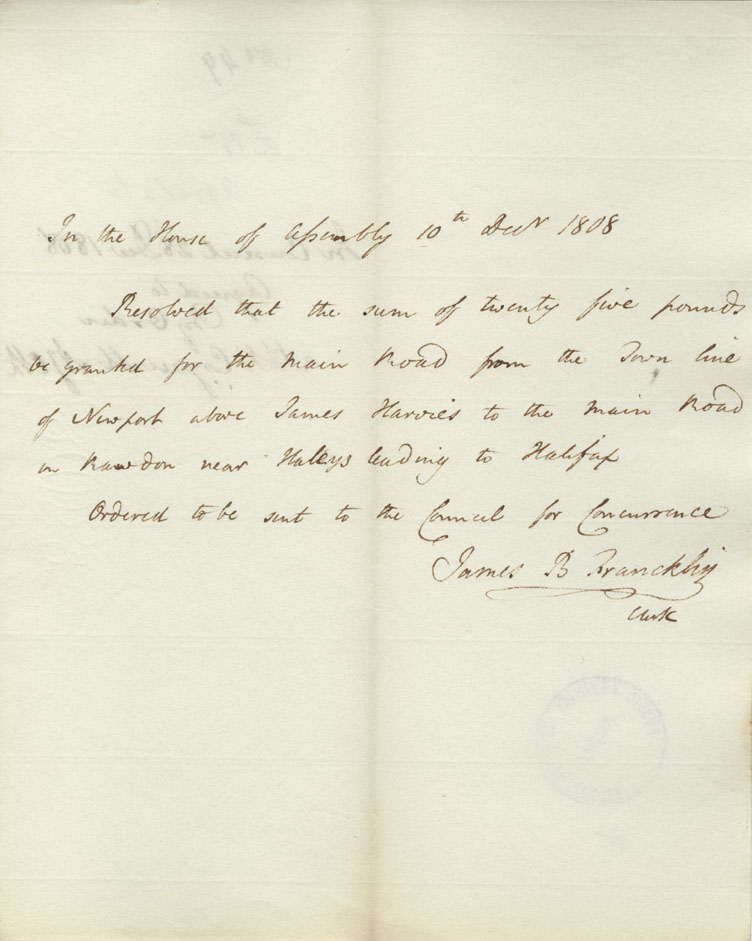 In the House of Assembly 10th Decr 1808
Resolved that the sum of twenty five pounds
be granted for the main Road from the Town line
of Newport above James Harvies to the main Road
in Rawdon near Haleys leading to Halifax
Ordered to be sent to the Council for Concurrence
James B Francklin
Clerk